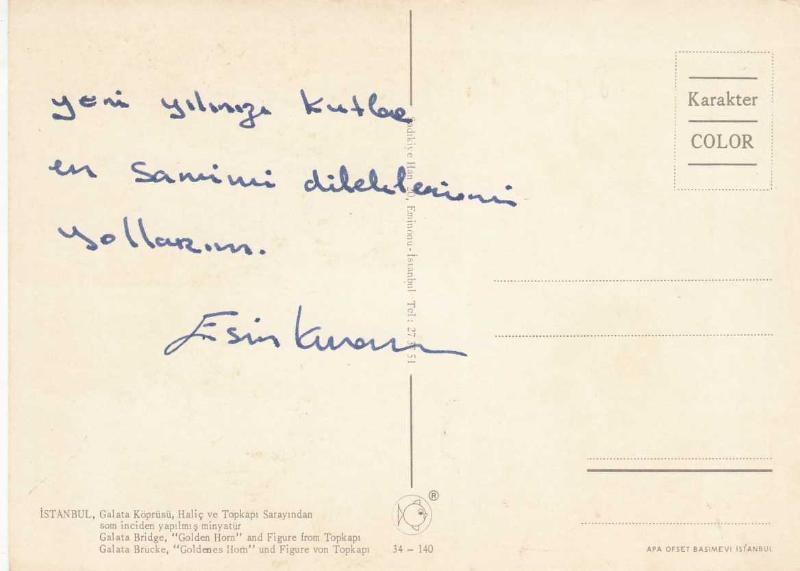 yeni yılınızı kutlar
en samimi dileklerimi
yollarım.
Karakter
COLOR
Han
Eminönü-İstanbul Tel: 27
51
İSTANBUL, Galata Köprüsü, Haliç ve Topkapı Sarayından
som inciden yapılmış minyatür
Galata Bridge, "Golden Horn" and Figure from Topkapı
Galata Brücke, "Goldenes Horn" und Figure von Topkapı
®
34 - 140
APA OFSET BASIMEVİ İSTANBUL